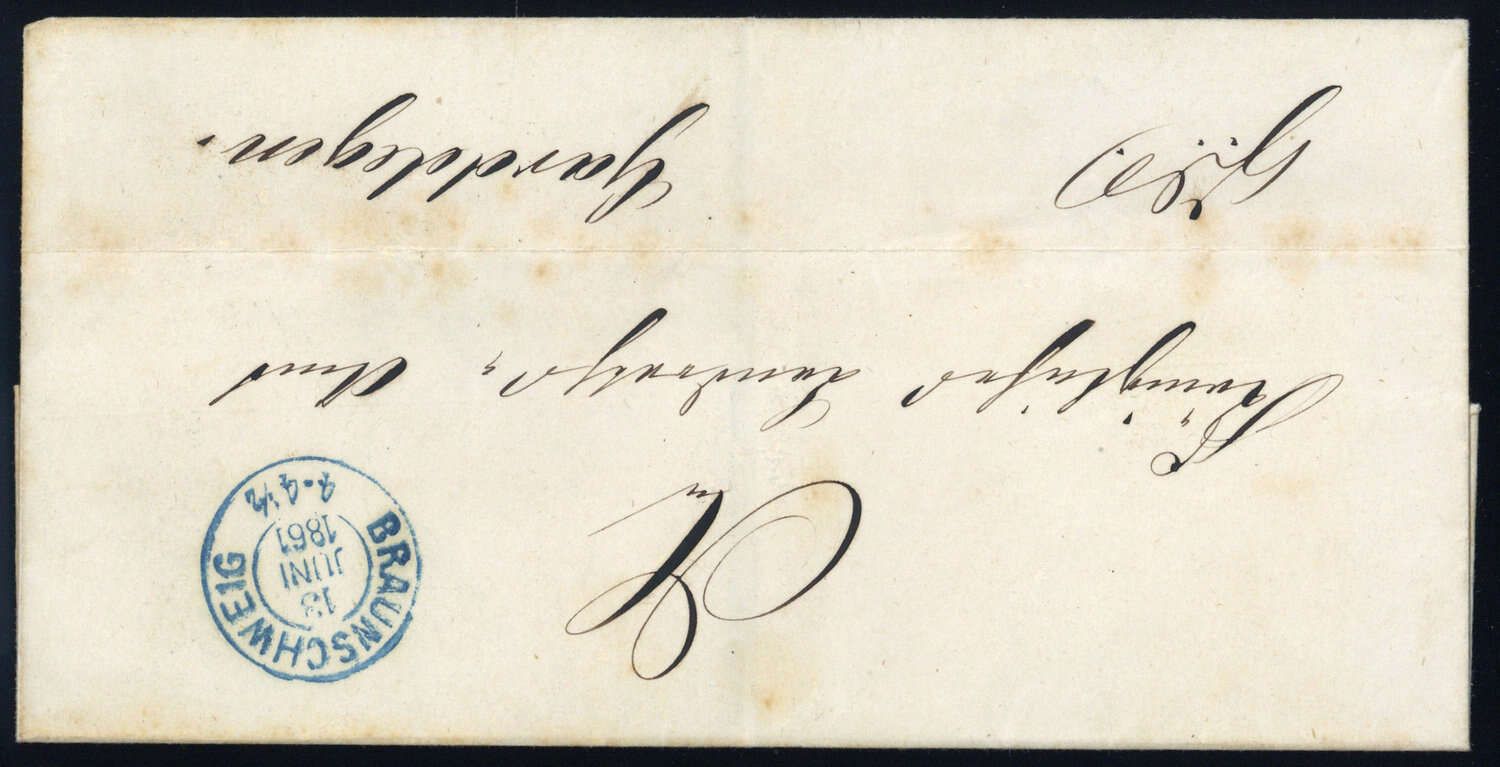 An
Königliches Landraths-Amt
Gardelegen.
BRAUNSCHWEIG
13
JUNI
1861
4-4½